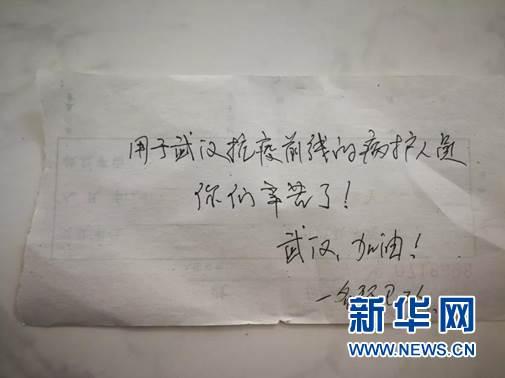 用于武汉抗疫前线的病护人员
你们辛苦了！
武汉，加油！
一名
新华网
WWW.NEWS.CN